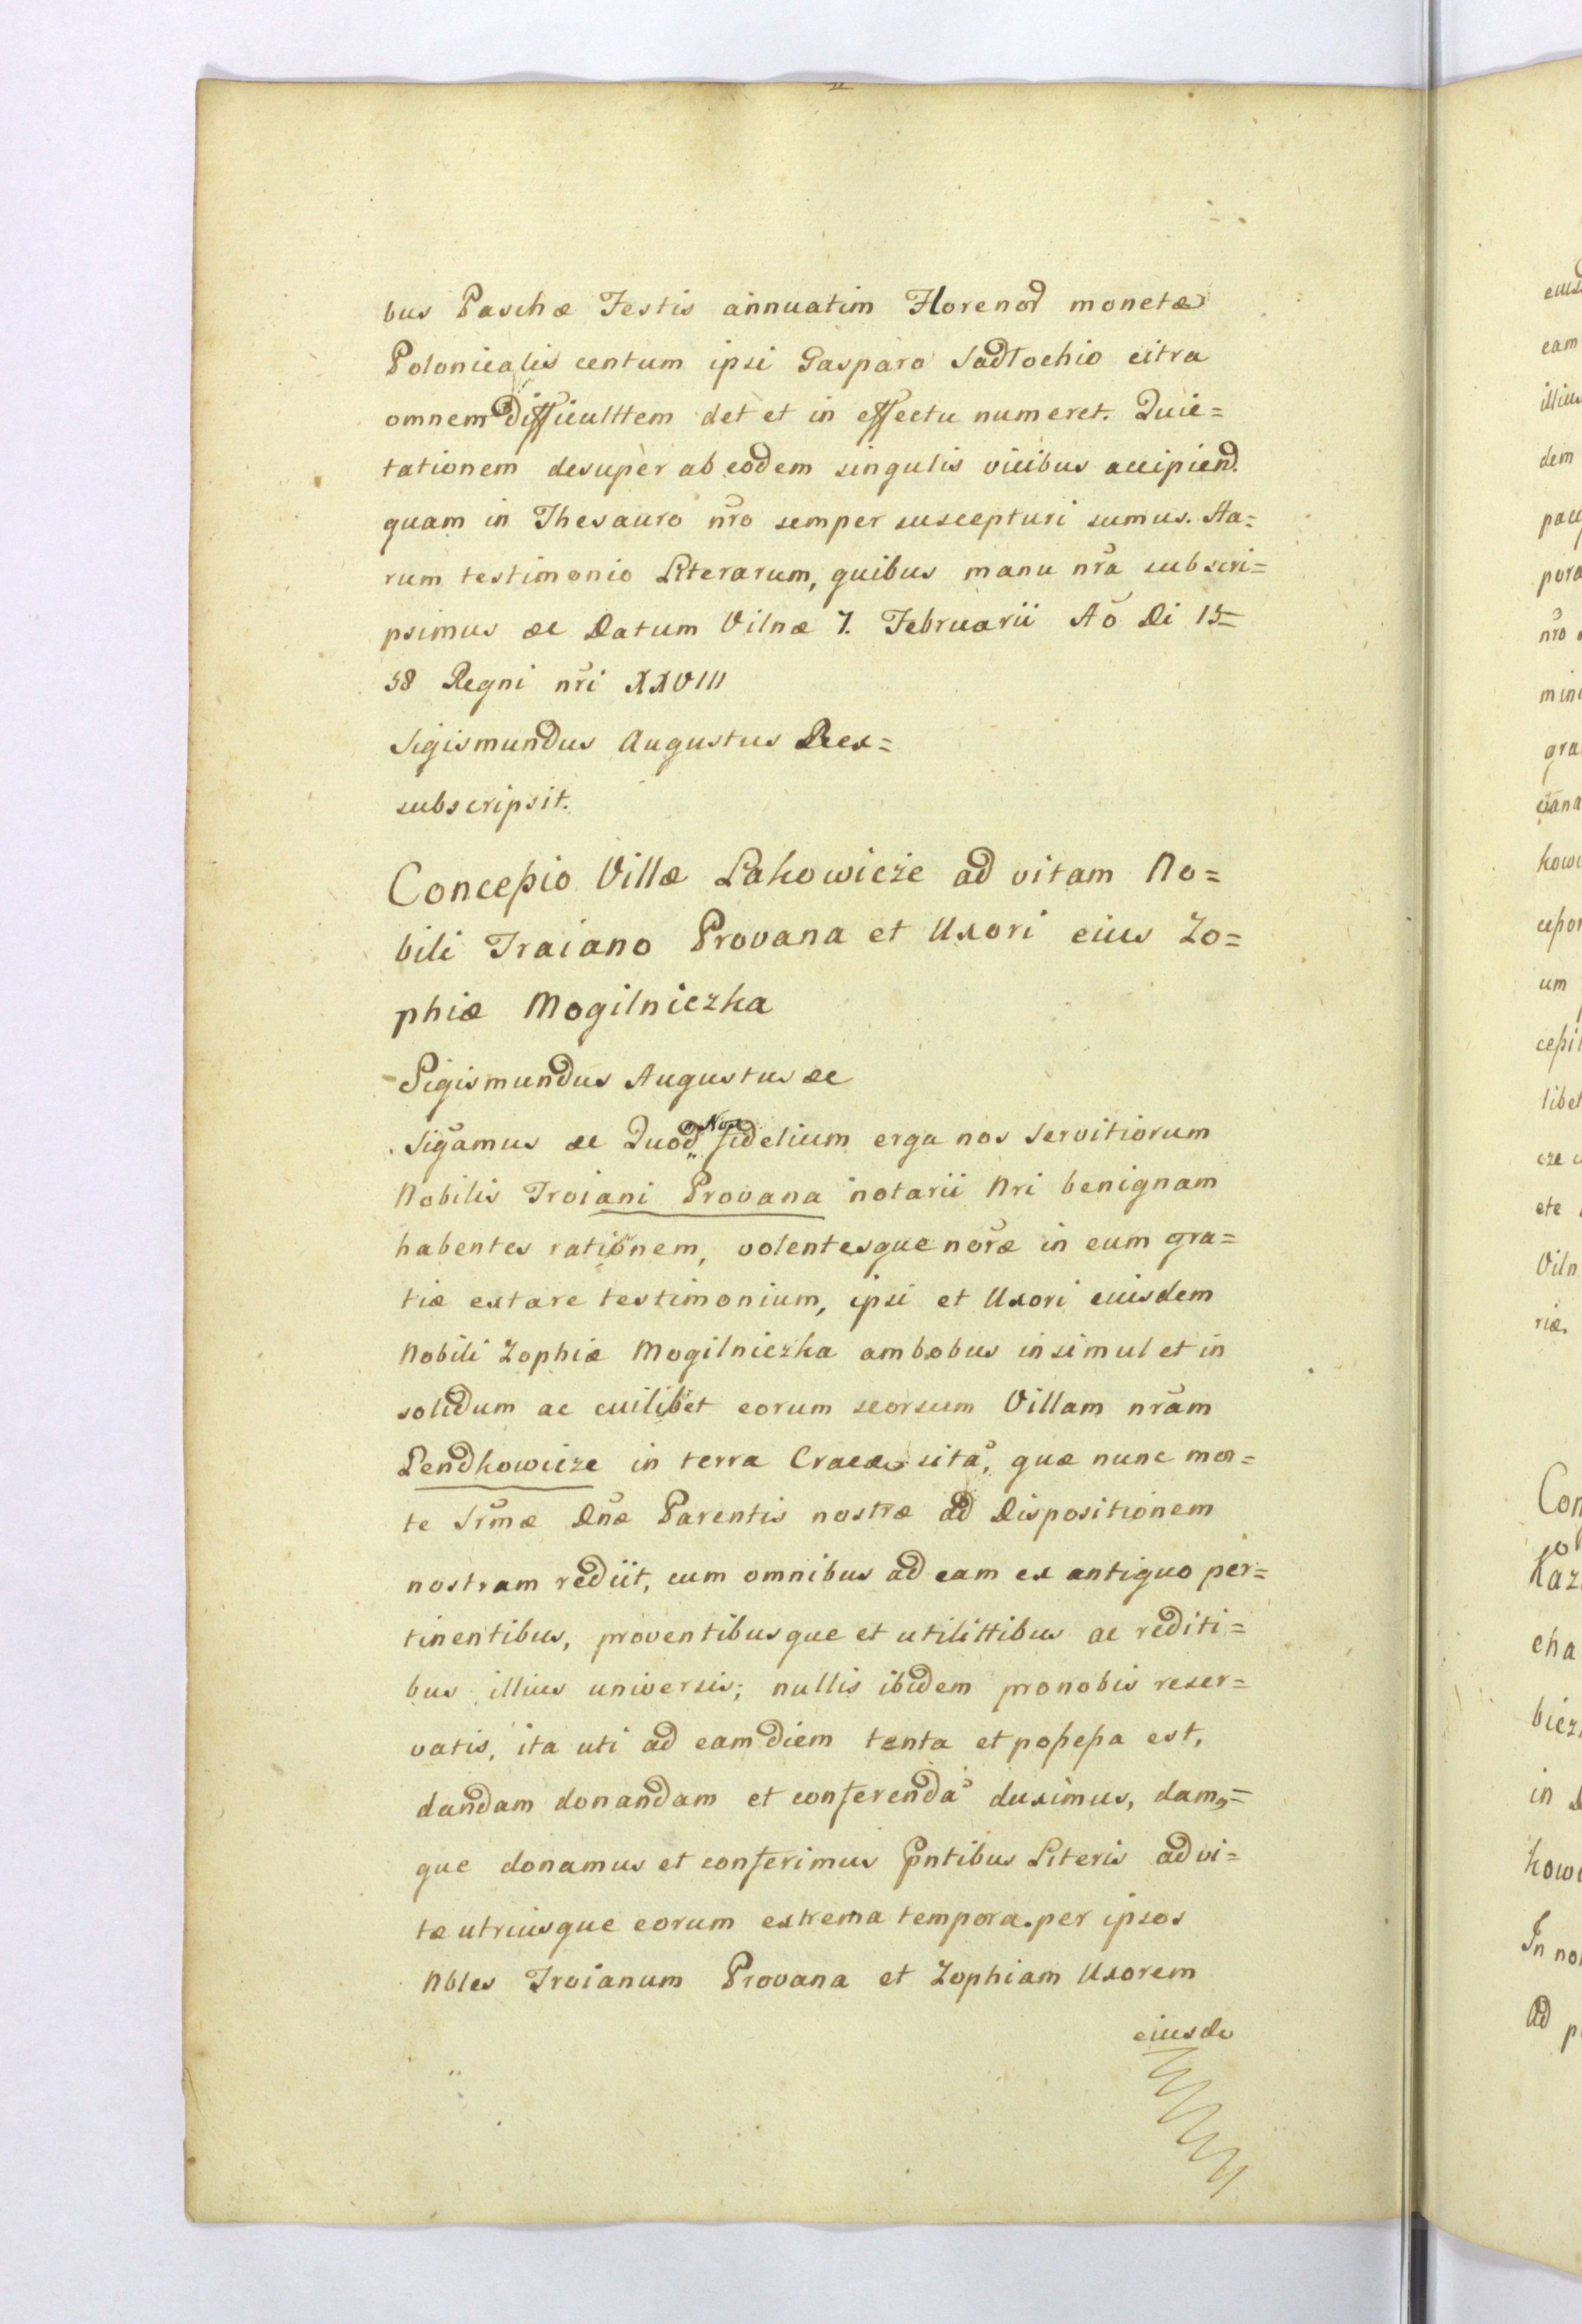 bus Paschæ Festis annuatim Florenor monetæ
Polonicalis centum ipsi Gasparo Sadlochio citra
omnem difficulttem det et in effectu numeret. Quie=
tationem desuper ab eodem singulis vicibus accipiend.
quam in Thesauro nro semper suscepturi sumus. Ha=
rum testimonio Literarum, quibus manu nra subscri=
psimus &c Datum Vilnæ 7. Februarii Ao Di 15=
58 Regni nri XXVIII
Sigismundus Augustus Rex=
subscripsit.
Concessio Villæ Lakowicze ad vitam No=
bili Traiano Provana et Uxori eius Zo=
phiæ Mogilniczka
Sigismundus Augustus &c
Sigamus &c Quod Nos fidelium erga nos Servitiorum
Nobilis Troiani Provana notarii Nri benignam
habentes rationem, volentesque noræ in eum gra=
tiæ extare testimonium, ipsi et Uxori eiusdem
Nobili Zophiæ Mogilniczka ambobus insimul et in
solidum ac cuilibet eorum seorsum Villam nram
Lendkowicze in terra Cracov sita, quæ nunc mor=
te Srmæ Dnæ Parentis nostræ ad Dispositionem
nostram rediit, cum omnibus ad eam ex antiquo per=
tinentibus, proventibusque et utilittibus ac rediti=
bus illius universis; nullis ibidem pro nobis reser=
vatis, ita uti ad eam diem tenta et possessa est,
dandam donandam et conferenda duximus, dam9=
que donamus et conferimus pntibus Literis ad vi=
tæ utriusque eorum extrema tempora. per ipsos
Nbles Troianum Provana et Zophiam Uxorem
eiusde
eiusd
eam
illius
dem
pac
pora
nro
mini
gra
vana
kowi
cessor
um
cessi
libet
cze
ete
Viln
riæ
Con
Kaz
cha
biez
in
kowi
In no
Ad p